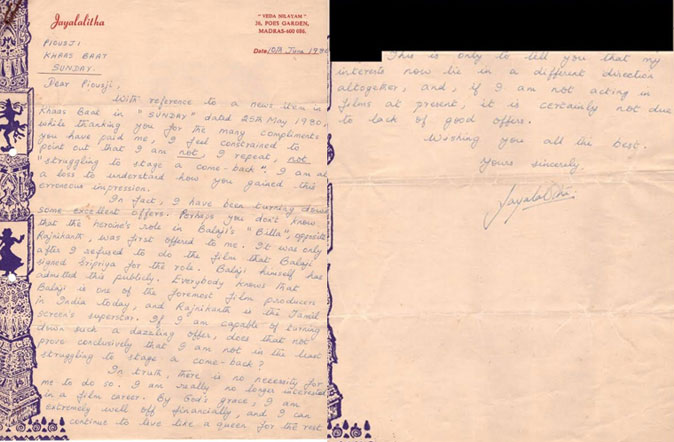 Jayalalitha
" VEDA NILAYAM "
36, POES GARDEN,
MADRAS-600 086.
Date 10th June 1980
PIOUSJI
KHAAS BAAT
SUNDAY.
Dear Piousji,
With reference to a news item in
Khaas Baat in "SUNDAY" dated 25th May 1980,
while thanking you for the many compliments
you have paid me, I feel constrained to
point out that I am not, I repeat, not
"struggling to stage a come-back". I am at
a loss to understand how you gained this
erroneous impression.
In fact, I have been turning down
some excellent offers. Perhaps you don't know
that the heroine's role in Balaji's "Billa", opposite
Rajnikanth, was first offered to me. It was only
after I refused to do the film that Balaji
signed Sripriya for the role. Balaji himself has
admitted this publicly. Everybody knows that
Balaji is one of the foremost film producers
in India today, and Rajnikanth is the Tamil
screen's superstar. If I am capable of turning
down such a dazzling offer, does that not
prove conclusively that I am not in the least
struggling to stage a come-back?
In truth, there is no necessity for
me to do so. I am really no longer interested
in a film career. By God's grace, I am
extremely well off financially, and I can
continue to live like a queen for the rest
This is only to tell you that my
interests now lie in a different direction
altogether, and, if I am not acting in
films at present, it is certainly not due
to lack of good offers.
Wishing you all the best.
Yours sincerely
Jayalalitha